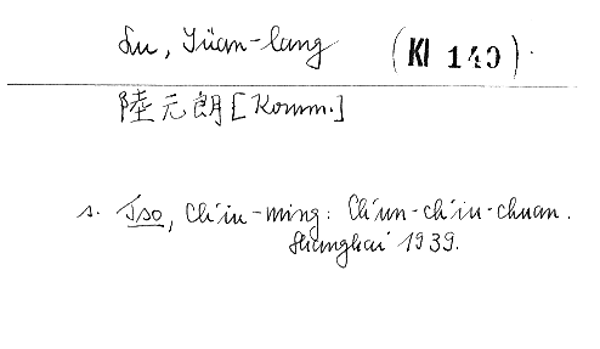 Lu, Yüan-lang (KI 140).
陸元朗 [Komm.]
s. Tso, Ch'iu-ming: Ch'un-ch'iu-chuan.
Shanghai 1939.